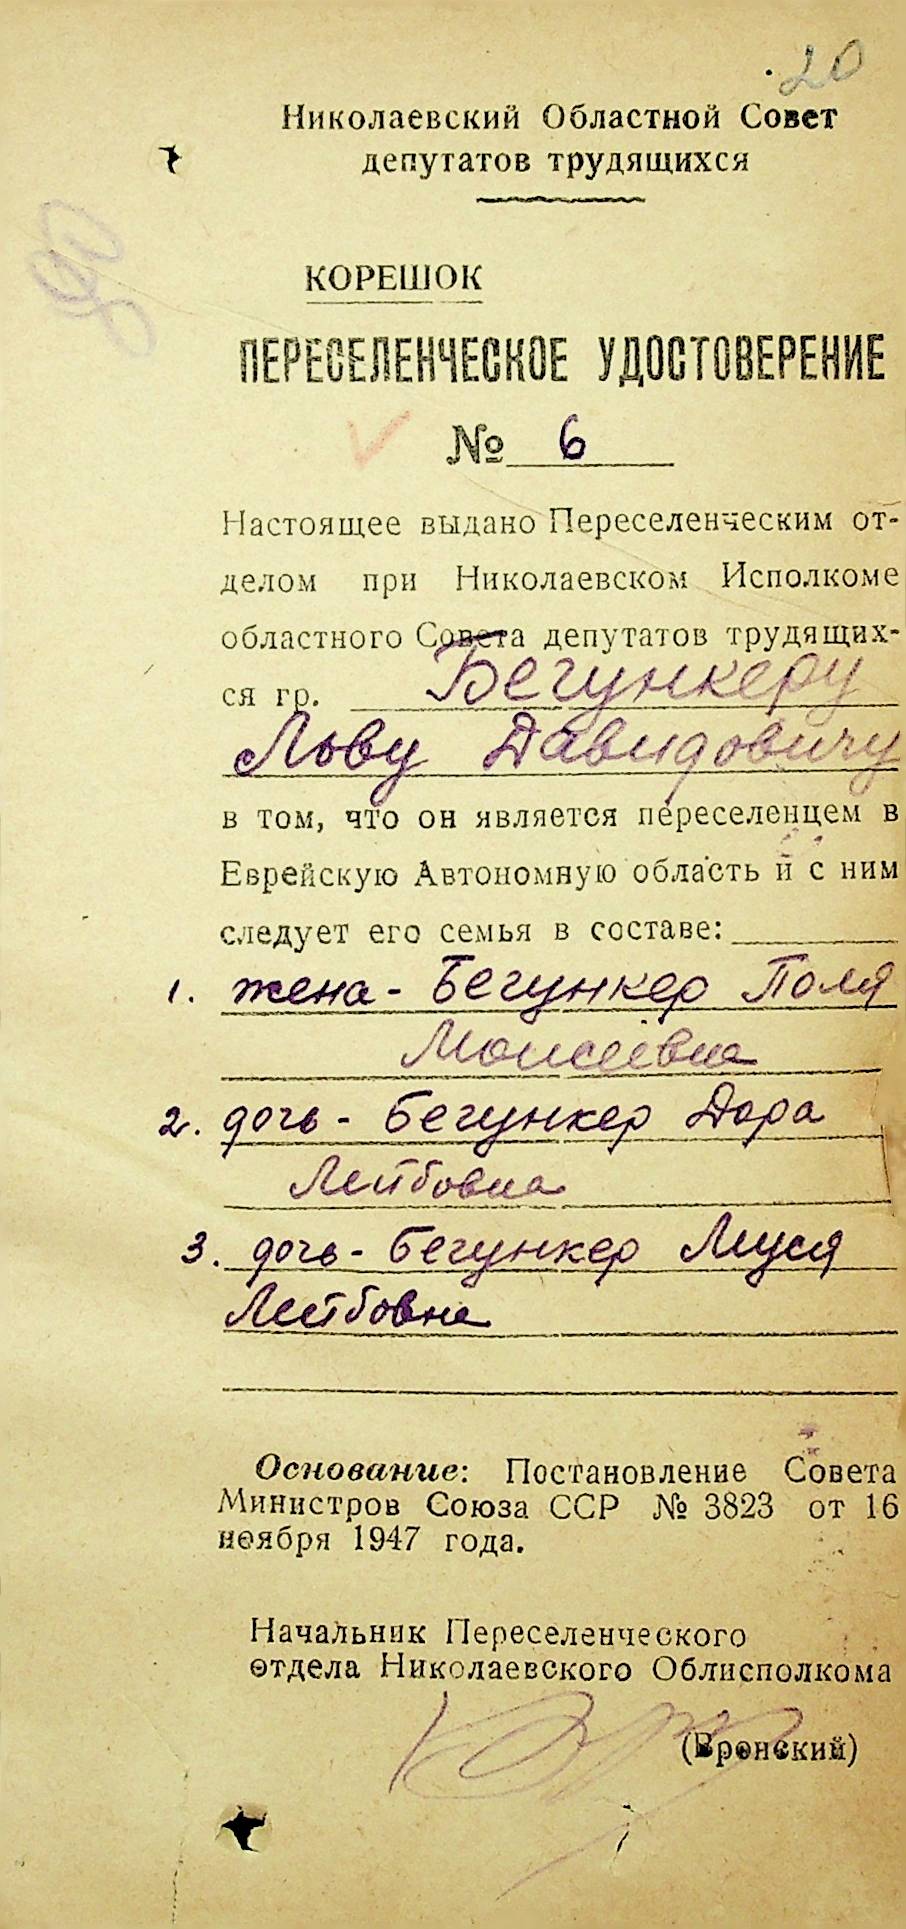 20
Николаевский Областной Совет
депутатов трудящихся
КОРЕШОК
ПЕРЕСЕЛЕНЧЕСКОЕ УДОСТОВЕРЕНИЕ
№ 6
Настоящее выдано Переселенческим от-
делом при Николаевском Исполкоме
областного Совета депутатов трудящих-
ся гр. Бегункеру
Льву Давидовичу
в том, что он является переселенцем в
Еврейскую Автономную область и с ним
следует его семья в составе:
1. жена - Бегункер Поля
Моисеевна
2. дочь - Бегункер Дора
Лейбовна
3. дочь - Бегункер Муся
Лейбовна
Основание: Постановление Совета
Министров Союза ССР № 3823 от 16
ноября 1947 года.
Начальник Переселенческого
отдела Николаевского Облисполкома
(Вронский)